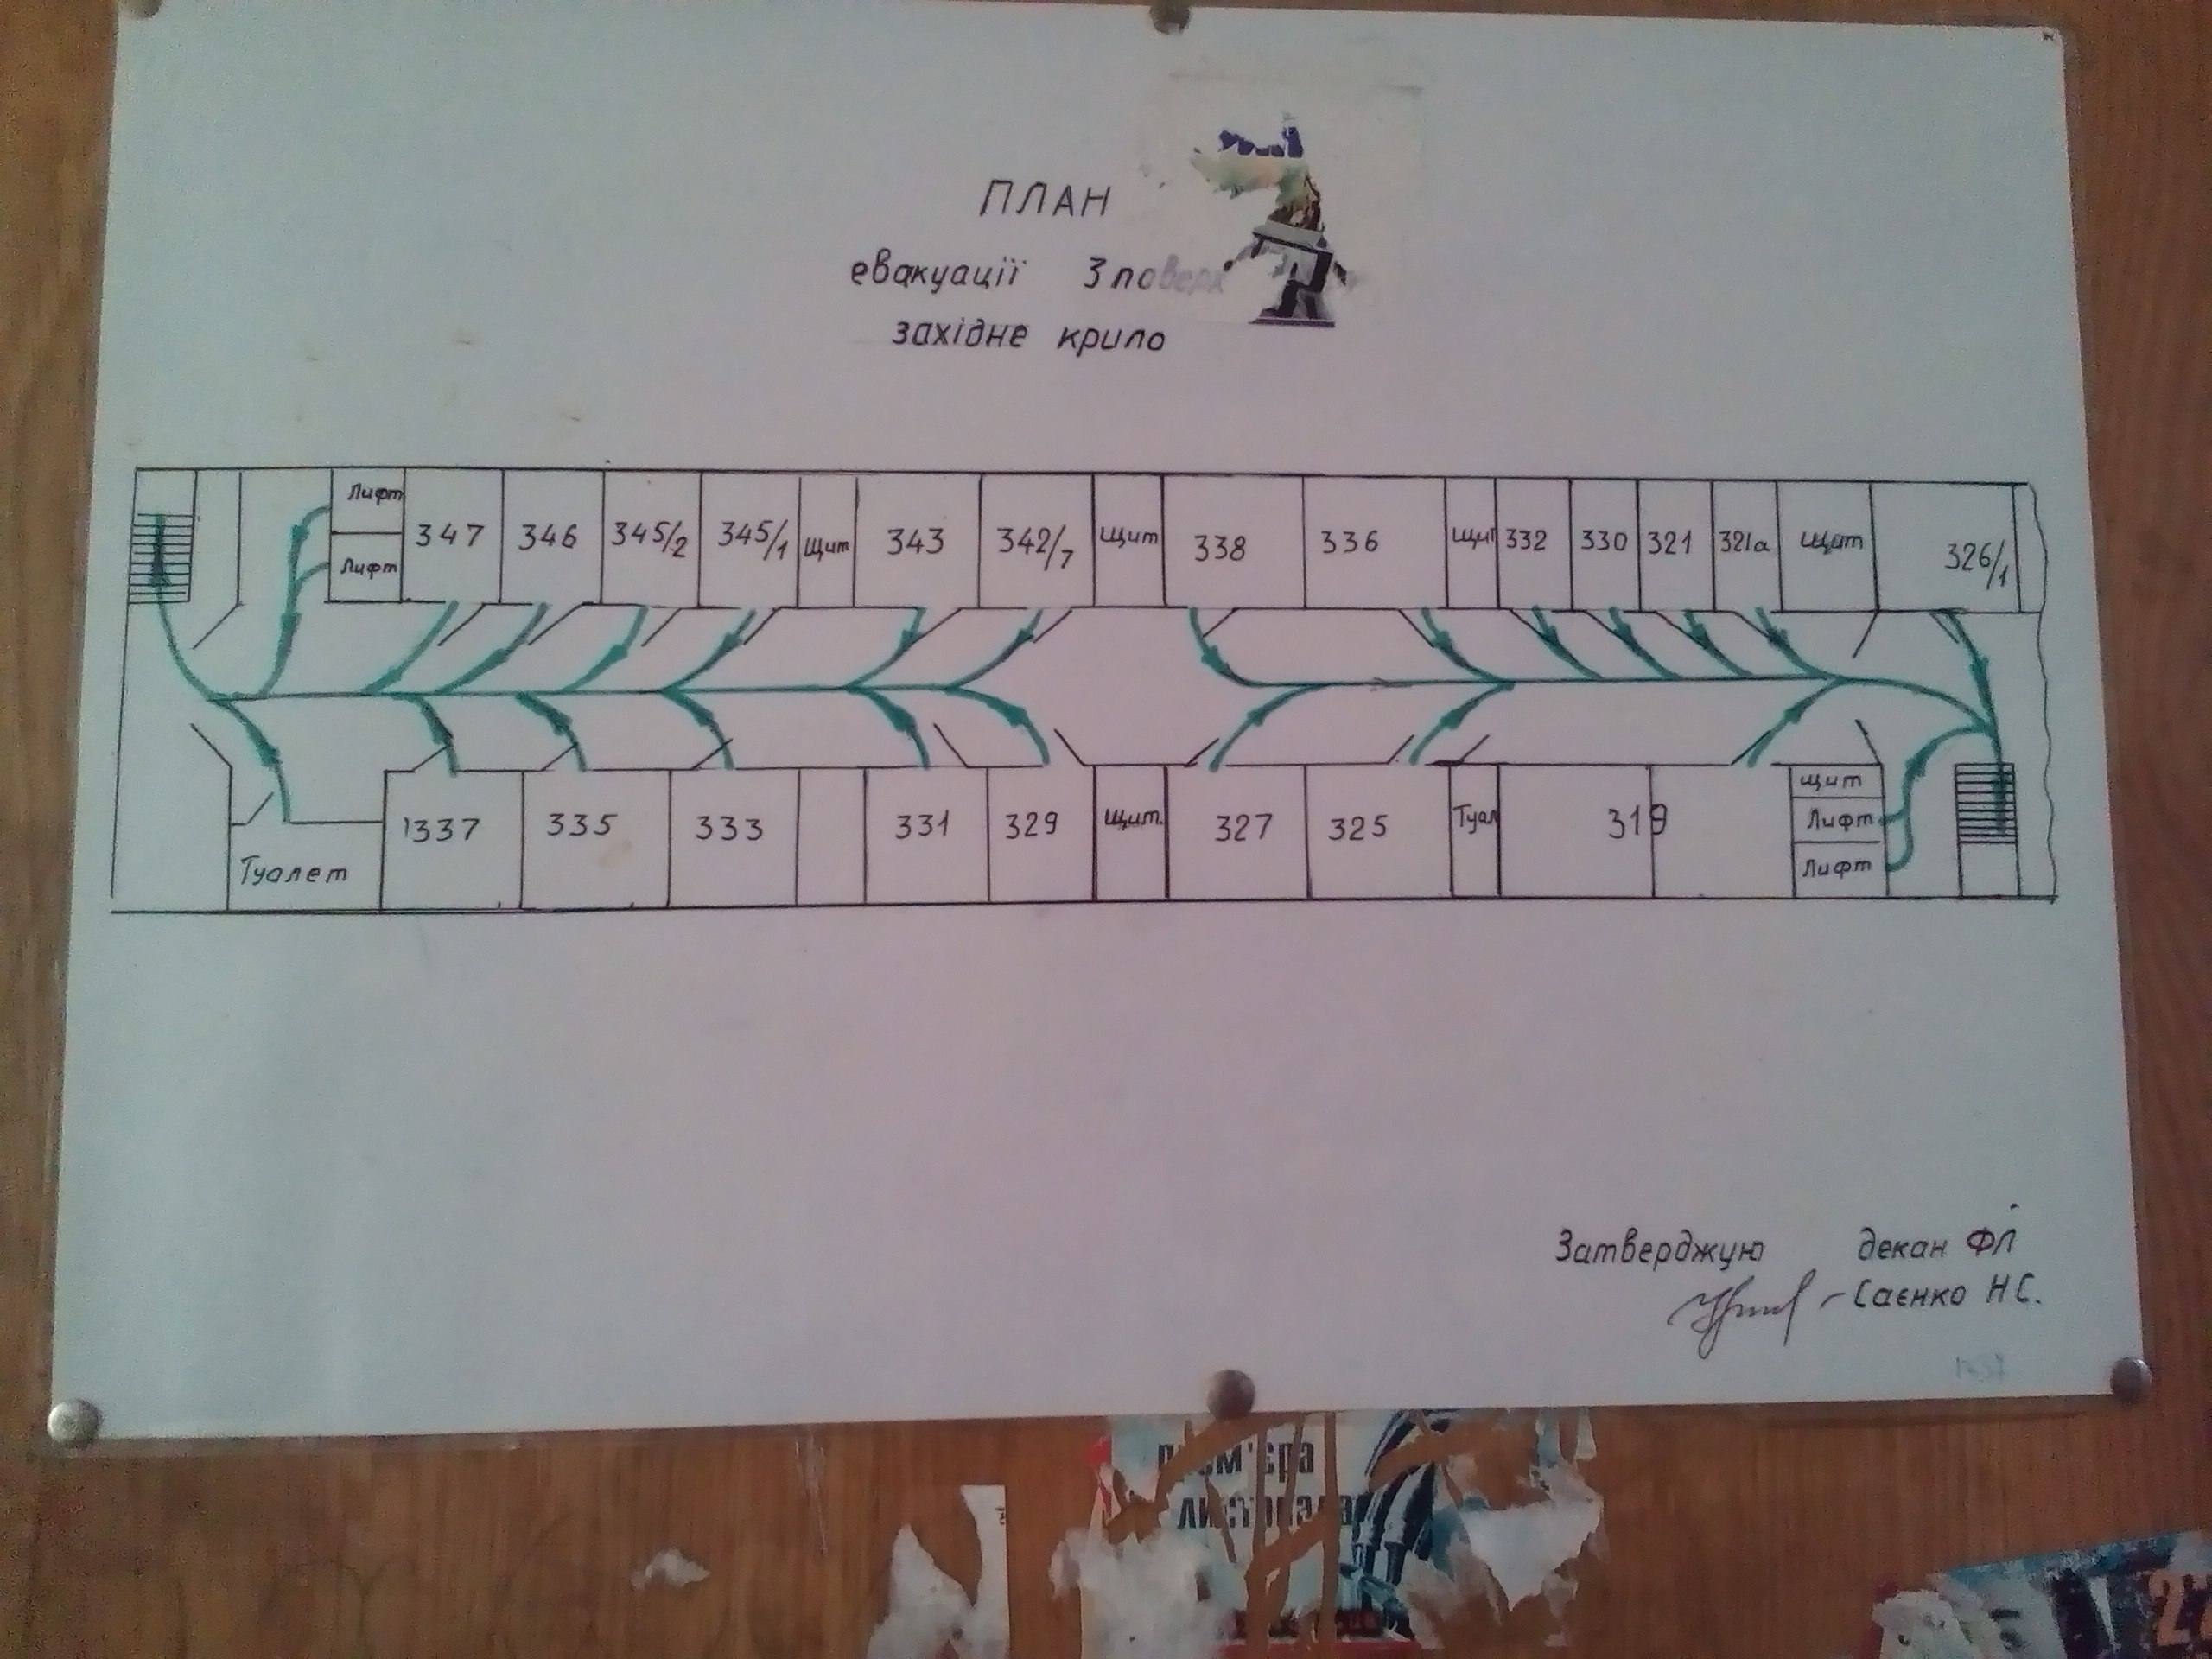 ПЛАН
евакуації 3 поверх
західне крило
Лифт
Лифт
347 346 345/2 345/1 Щит 343 342/7 Щит 338 336 Щит 332 330 321 321а Щит 326/1
Туалет 337 335 333 331 329 Щит. 327 325 Туал 319
щит
Лифт
Лифт
Затверджую декан ФЛ
Саєнко Н С.
прем'єра
листопада